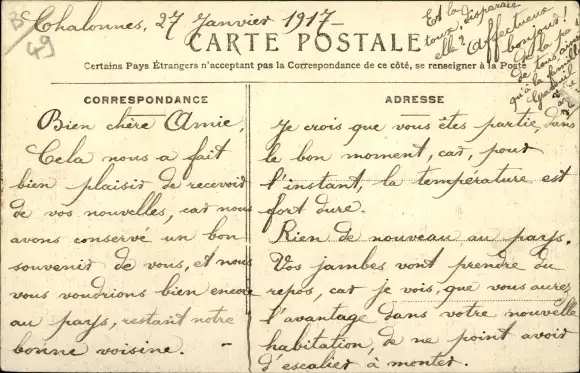 Chalonnes, 27 Janvier 1917 -
CARTE POSTALE
Certains Pays Étrangers n'acceptant pas la Correspondance de ce côté, se renseigner à la Poste
B
49
CORRESPONDANCE
Bien chère Amie,
Cela nous a fait
bien plaisir de recevoir
de vos nouvelles, car nous
avons conservé un bon
souvenir de vous, et nous
vous voudrions bien encore
au pays, restant notre
bonne voisine. -
ADRESSE
Je crois que vous êtes partie dans
le bon moment, car, pour
l'instant, la température est
fort dure.
Rien de nouveau au pays.
Vos jambes vont prendre du
repos, car je vois, que vous aurez
l'avantage dans votre nouvelle
habitation, de ne point avoir
d'escalier à monter.
Est la
toux, disparaie
elle? Affectueux
bonjour!
de tous, ainsi
qu'à la famille